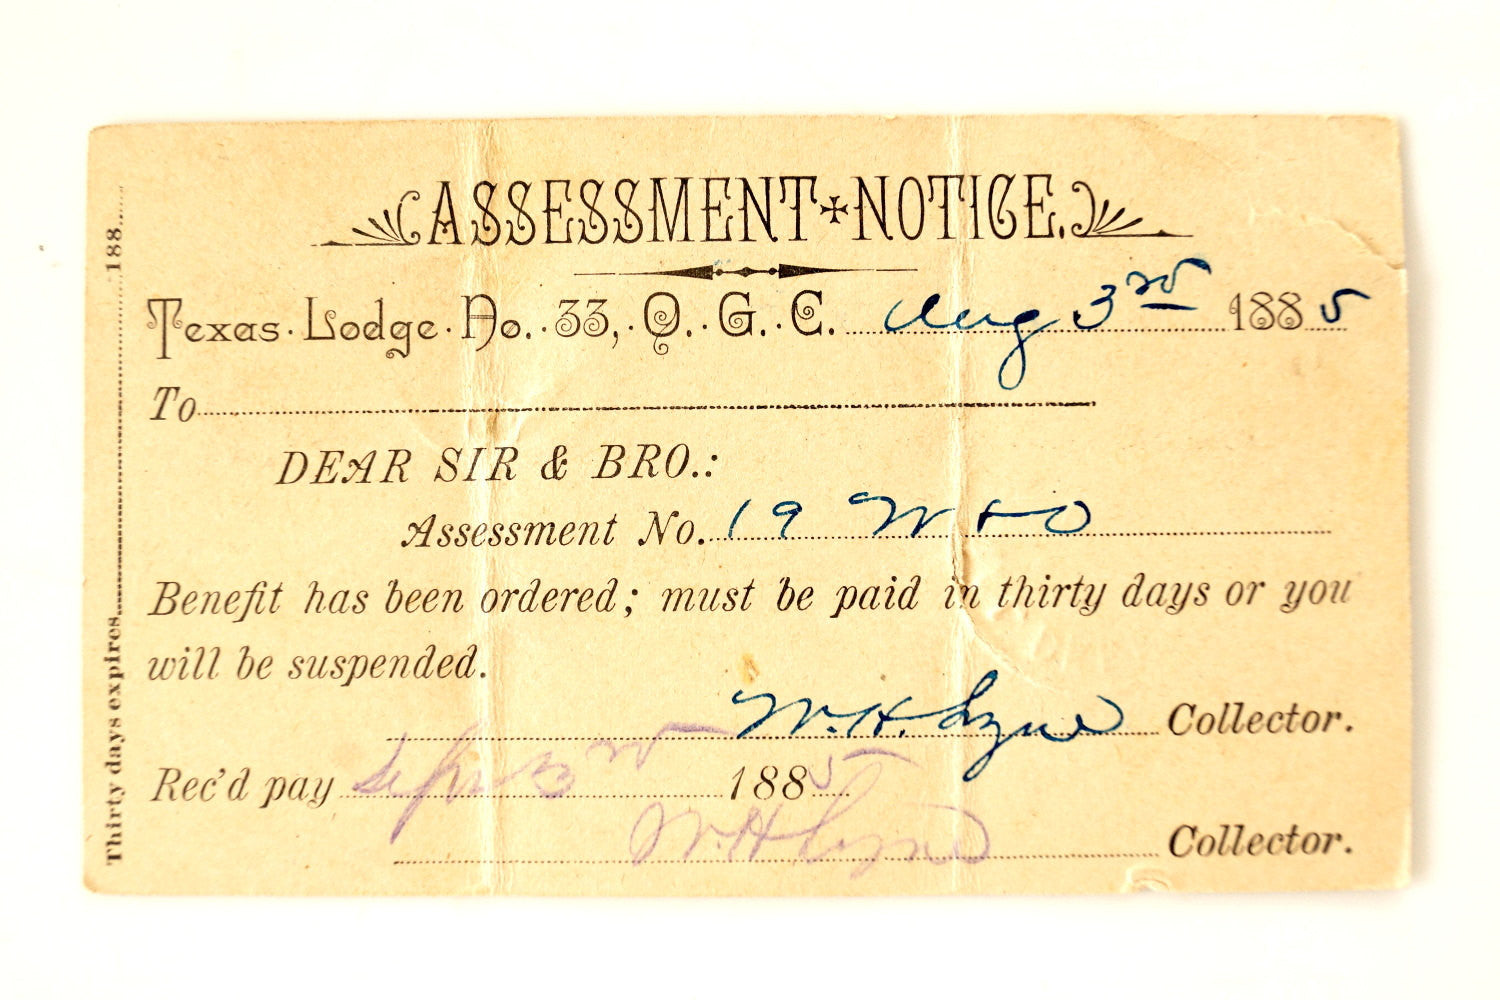 ASSESSMENT NOTICE.
Texas Lodge No. 33, O. G. C. Aug 3rd 1885
To
DEAR SIR & BRO.:
Assessment No. 19 W & O
Benefit has been ordered; must be paid in thirty days or you
will be suspended.
W. H. Lyne Collector.
Rec'd pay Sept 3rd 1885
W. H. Lyne Collector.
Thirty days expires 188